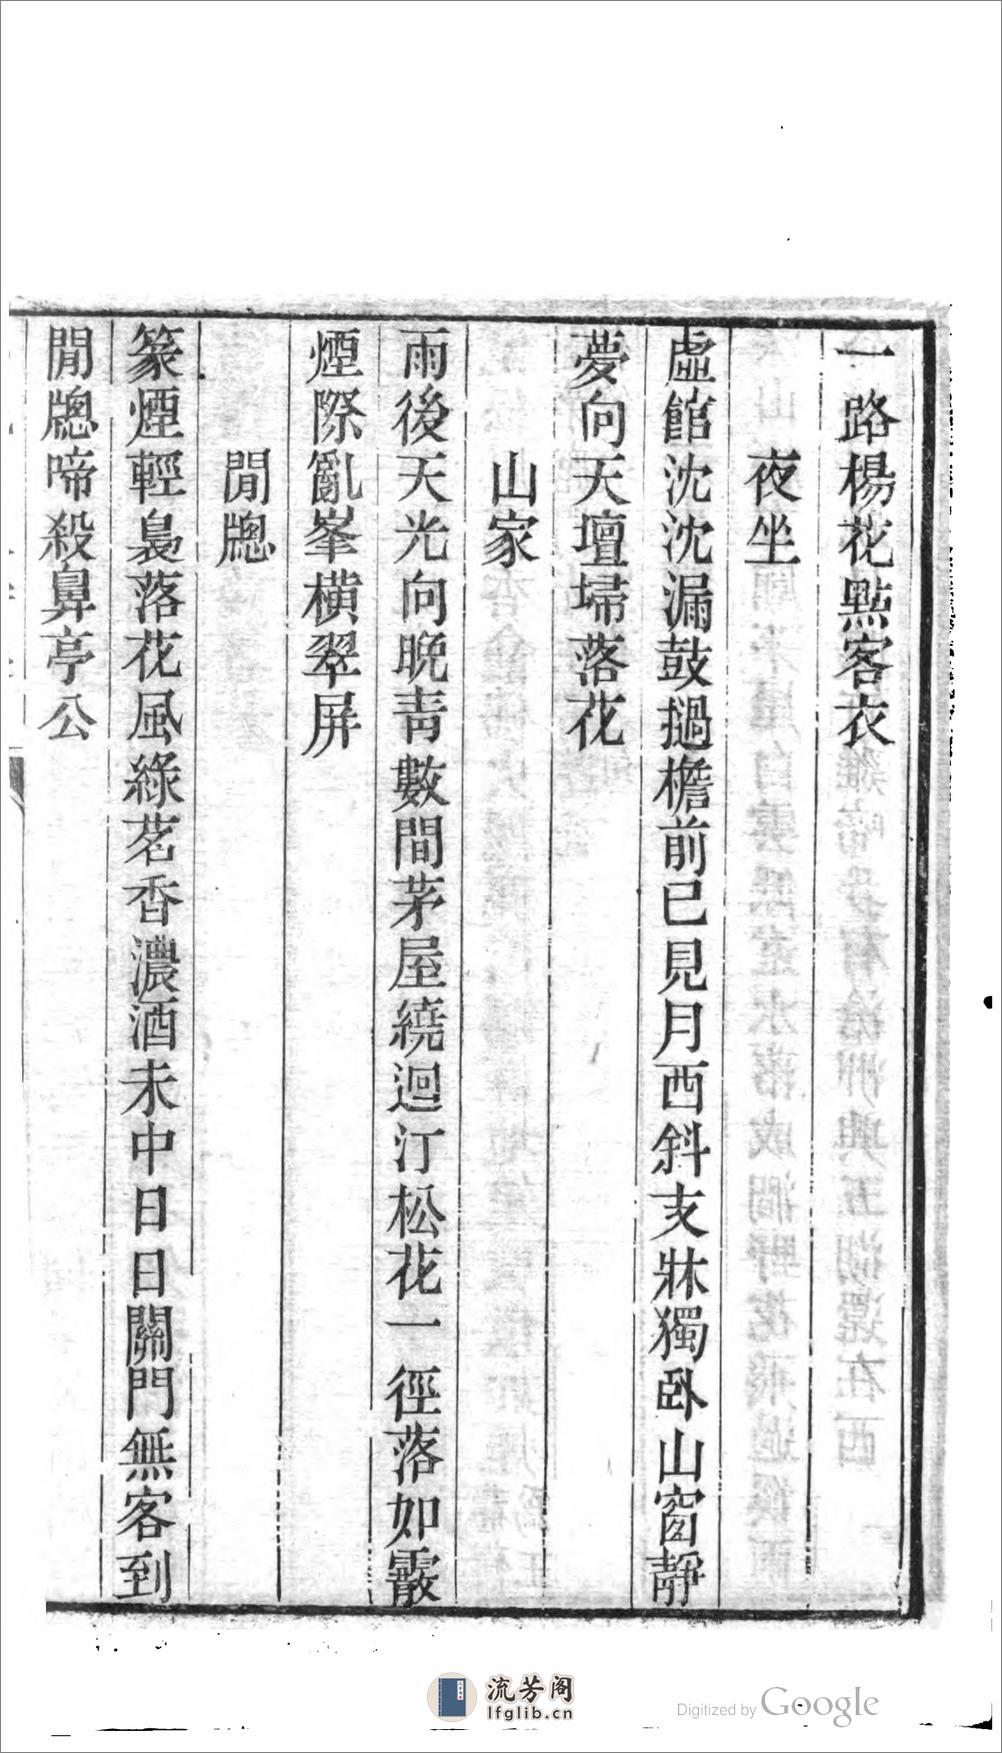 一路楊花點客衣
夜坐
虛館沈沈漏鼓撾檐前已見月西斜支牀獨臥山窗靜
夢向天壇埽落花
山家
雨後天光向晚靑數間茅屋繞迴汀松花一徑落如霰
煙際亂峯橫翠屏
閒牕
篆煙輕裊落花風綠茗香濃酒未中日日關門無客到
閒牕啼殺鼻亭公
流芳阁
lfglib.cn
Digitized by Google